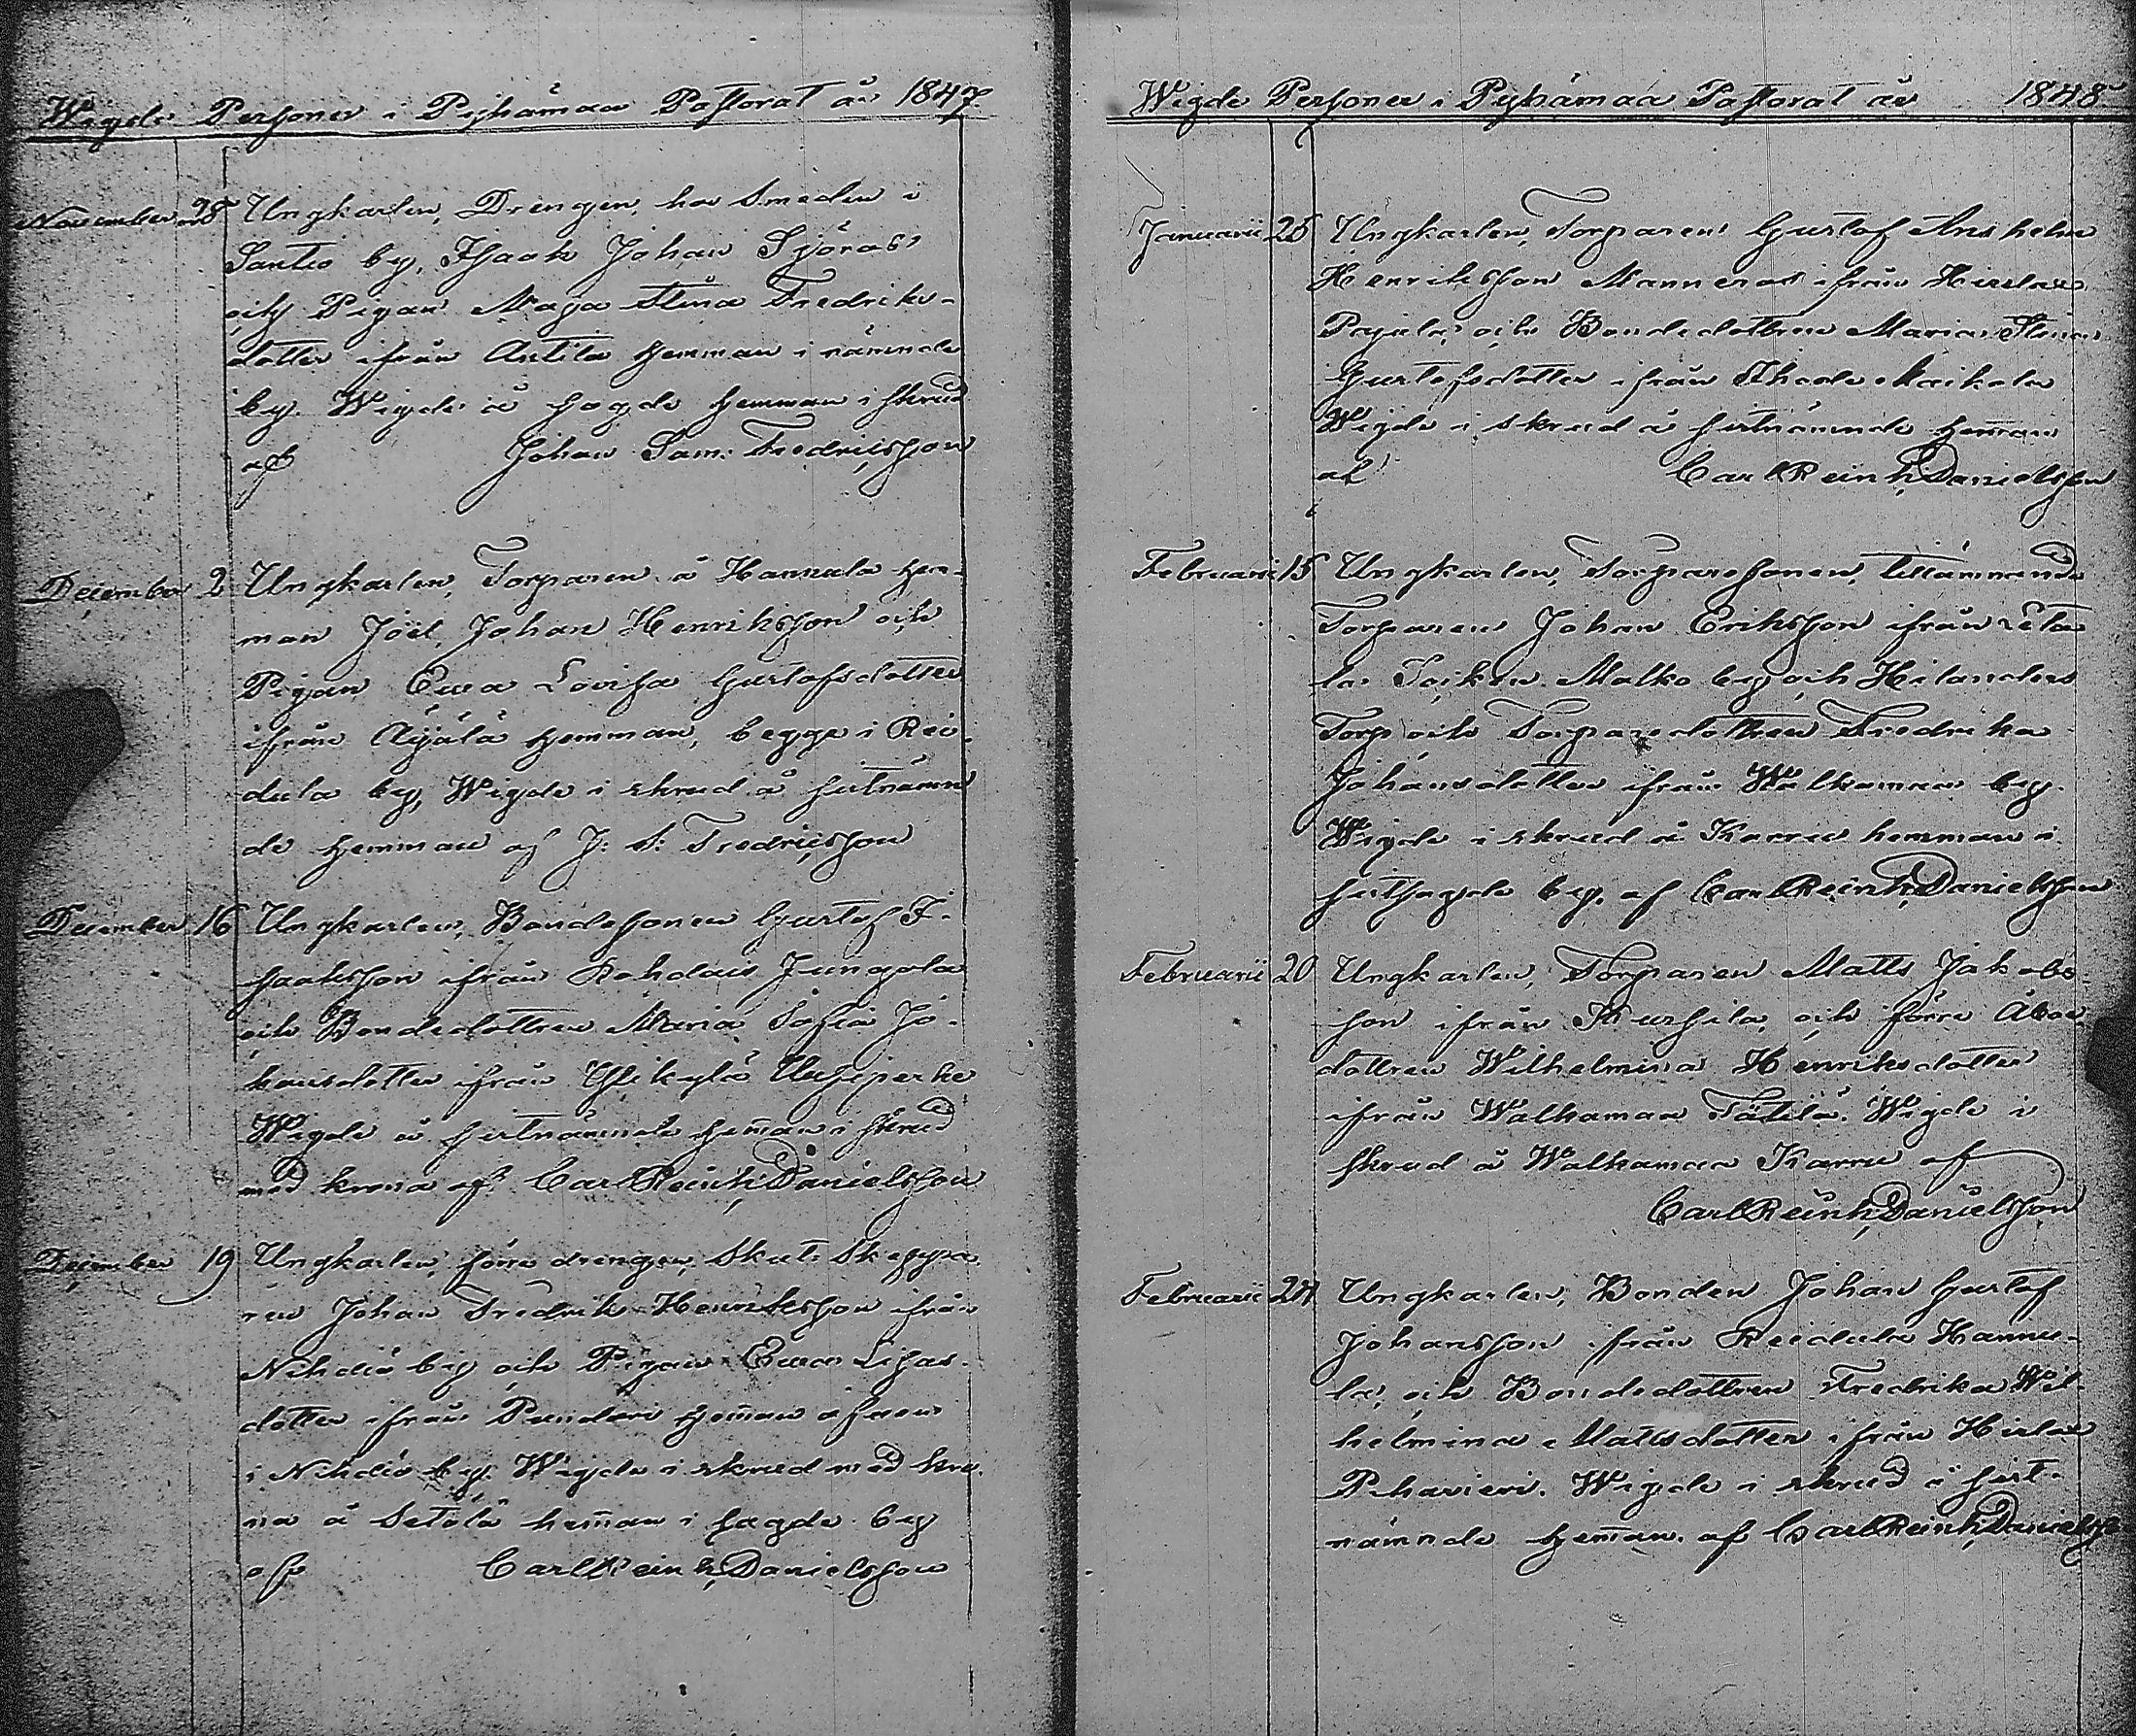 Wigde Personer i Pyhämaa Pastorat år 1847
November 28 Ungkarlen, Drengen, hos Smeden i
Santio by, Isaak Johan Sjöros
och Pigan Maja Stina Fredriks-
dotter ifrån Anttila hemman i nämnde
by. Wigde å sagde hemman i skrud
af Johan Sam: Fredricsson
December 2 Ungkarlen, Torparen å Hannula hem-
man Joël Johan Henriksson och
Pigan Ewa Lovisa Gustafsdotter
ifrån Äyälä hemman, begge i Rei-
dula by, Wigde i skrud å sistnämn
de hemman af J: S: Fredricsson
December 16 Ungkarlen, Bondesonen Gustaf I-
saaksson ifrån Rohdais Jungola
och Bondedottren Maria Sofia Jo-
hansdotter ifrån Ylikylä Uusiperhe
Wigde å sistnämnde heman i skrud
med krona af Carl Reinh. Danielsson
December 19 Ungkarlen, förre drengen, Skut-Skeppa-
ren Johan Fredrik Henriksson ifrån
Nihdiö by och Pigan Ewa Lisas-
dotter ifrån Pundari heman
i Nihdiö by. Wigde i skrud med kro-
na å Setälä heman i sagde by
af Carl Reinh. Danielsson
Wigde Personer i Pyhämaa Pastorat år 1848
Januarii 25 Ungkarlen, Torparen Gustaf Anshelm
Henriksson Manneros ifrån Hirslax
Pajula, och Bondedottren Maria Stina
Gustafsdotter ifrån Ihode Kaikola
Wigde i skrud å sistnämnde heman
af Carl Reinh. Danielsson
Februarii 15 Ungkarlen, Torparesonen, tillämnande
Torparen Johan Eriksson ifrån Leta
la Soikan Malko by och Hilanders
Torp och Torparedottren Fredrika
Johansdotter ifrån Walkamaa by.
Wigde i skrud å Karru hemman i
sistsagde by, af Carl Reinh. Danielsson
Februarii 20 Ungkarlen, Torparen Matts Jakobs-
son ifrån Kursila, och förre Åbo-
dottren Wilhelmina Henriksdotter
ifrån Walkamaa Tätilä. Wigde i
skrud å Walkamaa Karru af
Carl Reinh. Danielsson
Februarii 24 Ungkarlen, Bonden Johan Gustaf
Johansson ifrån Reidula Hannu-
la, och Bondedottren Fredrika Wil-
helmina Mattsdotter ifrån Hirslax
Pihavieri. Wigde i skrud å sist-
nämnde heman. af Carl Reinh. Danielss